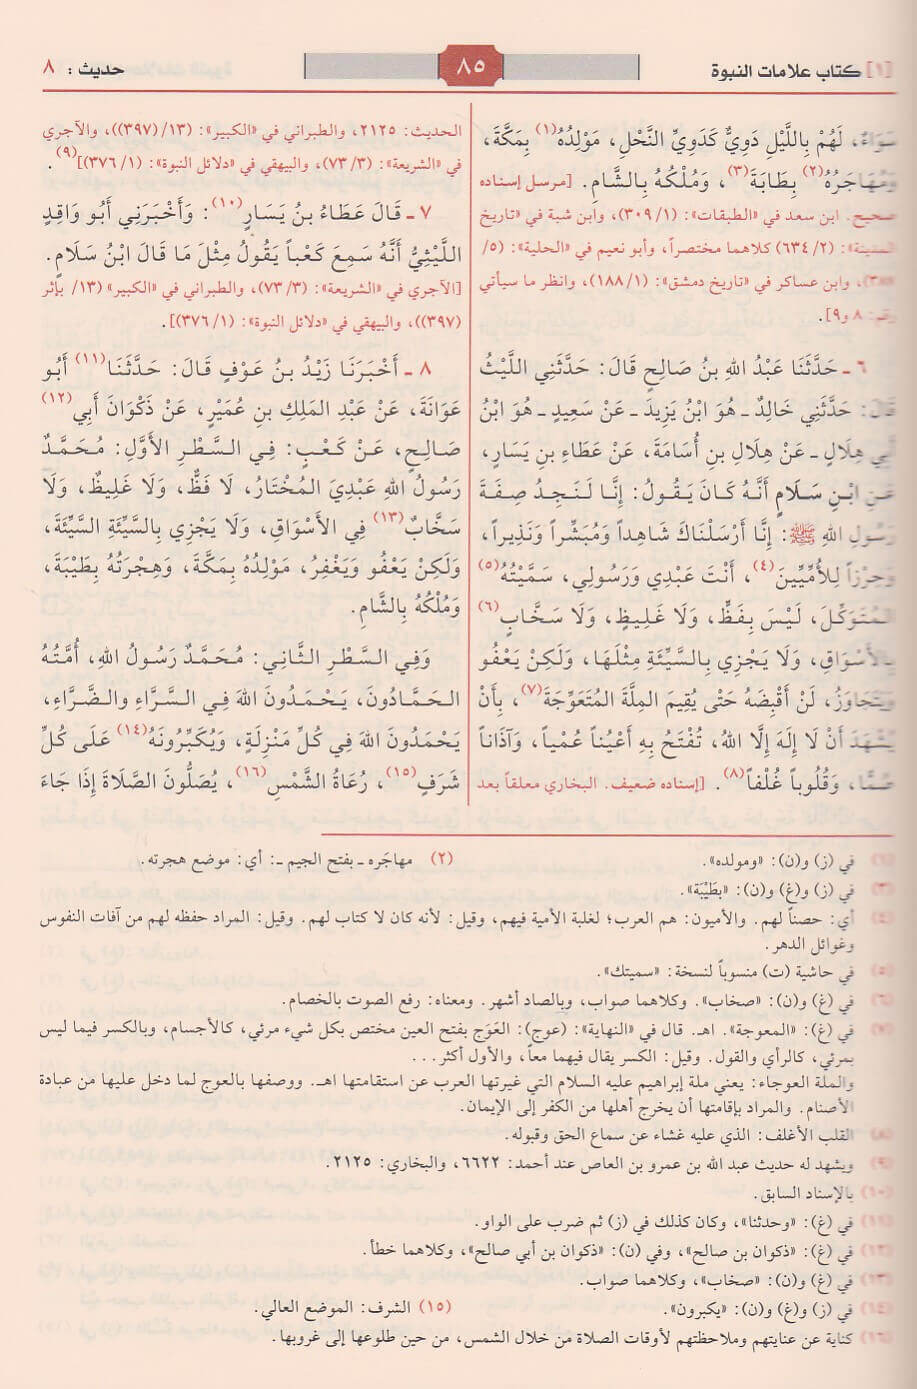 [١] كتاب علامات النبوة
٨٥
حديث : ٨
سَوَاءٌ، لَهُمْ بِاللَّيْلِ دَوِيٌّ كَدَوِيِّ النَّحْلِ، مَوْلِدُهُ(١) بِمَكَّةَ،
وَمُهَاجَرُهُ(٢) بِطَابَةَ(٣)، وَمُلْكُهُ بِالشَّامِ. [مرسل إسناده
صحيح. ابن سعد في «الطبقات»: (٣٠٩/١)، وابن شبة في «تاريخ
المدينة»: (٦٣٤/٢) كلاهما مختصراً، وأبو نعيم في «الحلية»: (٥/
، وابن عساكر في «تاريخ دمشق»: (١٨٨/١)، وانظر ما سيأتي
رقم: ٨ و٩].
٦ ـ حَدَّثَنَا عَبْدُ اللهِ بْنُ صَالِحٍ قَالَ: حَدَّثَنِي اللَّيْثُ
قَالَ: حَدَّثَنِي خَالِدٌ ـ هُوَ ابْنُ يَزِيدَ ـ عَنْ سَعِيدٍ ـ هُوَ ابْنُ
أَبِي هِلَالٍ ـ عَنْ هِلَالِ بنِ أُسَامَةَ، عَنْ عَطَاءِ بنِ يَسَارٍ،
عَنِ ابْنِ سَلَامٍ أَنَّهُ كَانَ يَقُولُ: إِنَّا لَنَجِدُ صِفَةَ
رَسُولِ اللهِ ﷺ: إِنَّا أَرْسَلْنَاكَ شَاهِداً وَمُبَشِّراً وَنَذِيراً،
وَحِرْزاً لِلأُمِّيِّينَ(٤)، أَنْتَ عَبْدِي وَرَسُولِي، سَمَّيْتُهُ(٥)
المُتَوَكِّلَ، لَيْسَ بِفَظٍّ، وَلَا غَلِيظٍ، وَلَا سَخَّابٍ(٦)
بِالأَسْوَاقِ، وَلَا يَجْزِي بِالسَّيِّئَةِ مِثْلَهَا، وَلَكِنْ يَعْفُو
وَيَتَجَاوَزُ، لَنْ أَقْبِضَهُ حَتَّى يُقِيمَ المِلَّةَ المُتَعَوِّجَةَ(٧)، بِأَنْ
يُشْهَدَ أَنْ لَا إِلَهَ إِلَّا اللهُ، نُفْتَحُ بِهِ أَعْيُناً عُمْياً، وَآذَاناً
صُمًّا، وَقُلُوباً غُلْفاً(٨). [إسناده ضعيف. البخاري معلقاً بعد
الحديث: ٢١٢٥، والطبراني في «الكبير»: (١٣/(٣٩٧))، والآجري
في «الشريعة»: (٧٣/٣)، والبيهقي في «دلائل النبوة»: (٣٧٦/١)](٩).
٧ ـ قَالَ عَطَاءُ بْنُ يَسَارٍ(١٠): وَأَخْبَرَنِي أَبُو وَاقِدٍ
اللَّيْثِيُّ أَنَّهُ سَمِعَ كَعْباً يَقُولُ مِثْلَ مَا قَالَ ابْنُ سَلَامٍ.
[الآجري في «الشريعة»: (٧٣/٣)، والطبراني في «الكبير» (١٣/ بإثر
(٣٩٧))، والبيهقي في «دلائل النبوة»: (٣٧٦/١)].
٨ ـ أَخْبَرَنَا زَيْدُ بنُ عَوْفٍ قَالَ: حَدَّثَنَا(١١) أَبُو
عَوَانَةَ، عَنْ عَبْدِ المَلِكِ بنِ عُمَيْرٍ، عَنْ ذَكْوَانَ أَبِي(١٢)
صَالِحٍ، عَنْ كَعْبٍ: فِي السَّطْرِ الأَوَّلِ: مُحَمَّدٌ
رَسُولُ اللهِ عَبْدِيَ المُخْتَارُ، لَا فَظٌّ، وَلَا غَلِيظٌ، وَلَا
سَخَّابٌ(١٣) فِي الأَسْوَاقِ، وَلَا يَجْزِي بِالسَّيِّئَةِ السَّيِّئَةَ،
وَلَكِنْ يَعْفُو وَيَغْفِرُ، مَوْلِدُهُ بِمَكَّةَ، وَهِجْرَتُهُ بِطَيْبَةَ،
وَمُلْكُهُ بِالشَّامِ.
وَفِي السَّطْرِ الثَّانِي: مُحَمَّدٌ رَسُولُ اللهِ، أُمَّتُهُ
الحَمَّادُونَ، يَحْمَدُونَ اللهَ فِي السَّرَّاءِ وَالضَّرَّاءِ،
يَحْمَدُونَ اللهَ فِي كُلِّ مَنْزِلَةٍ، وَيُكَبِّرُونَهُ(١٤) عَلَى كُلِّ
شَرَفٍ(١٥)، رُعَاةُ الشَّمْسِ(١٦)، يُصَلُّونَ الصَّلَاةَ إِذَا جَاءَ
(١) في (ز) و(ن): «ومولده». (٢) مهاجَره ـ بفتح الجيم ـ: أي: موضع هجرته.
(٣) في (ز) و(غ) و(ن): «بطَيْبَة».
(٤) أي: حصناً لهم. والأميون: هم العرب؛ لغلبة الأمية فيهم، وقيل: لأنه كان لا كتاب لهم. وقيل: المراد حفظه لهم من آفات النفوس
وغوائل الدهر.
(٥) في حاشية (ت) منسوباً لنسخة: «سميتك».
(٦) في (غ) و(ن): «صخاب». وكلاهما صواب، وبالصاد أشهر. ومعناه: رفع الصوت بالخصام.
(٧) في (غ): «المعوجة». اهـ. قال في «النهاية»: (عوج): العَوَج بفتح العين مختص بكل شيء مرئي، كالأجسام، وبالكسر فيما ليس
بمرئي، كالرأي والقول. وقيل: الكسر يقال فيهما معاً، والأول أكثر...
والملة العوجاء: يعني ملة إبراهيم عليه السلام التي غيرتها العرب عن استقامتها اهـ. ووصفها بالعوج لما دخل عليها من عبادة
الأصنام. والمراد بإقامتها أن يخرج أهلها من الكفر إلى الإيمان.
(٨) القلب الأغلف: الذي عليه غشاء عن سماع الحق وقبوله.
(٩) ويشهد له حديث عبد الله بن عمرو بن العاص عند أحمد: ٦٦٢٢، والبخاري: ٢١٢٥.
(١٠) بالإسناد السابق.
(١١) في (غ): «وحدثنا»، وكان كذلك في (ز) ثم ضرب على الواو.
(١٢) في (غ): «ذكوان بن صالح»، وفي (ن): «ذكوان بن أبي صالح»، وكلاهما خطأ.
(١٣) في (غ) و(ن): «صخاب»، وكلاهما صواب.
(١٤) في (ز) و(غ) و(ن): «يكبرون». (١٥) الشرف: الموضع العالي.
(١٦) كناية عن عنايتهم وملاحظتهم لأوقات الصلاة من خلال الشمس، من حين طلوعها إلى غروبها.